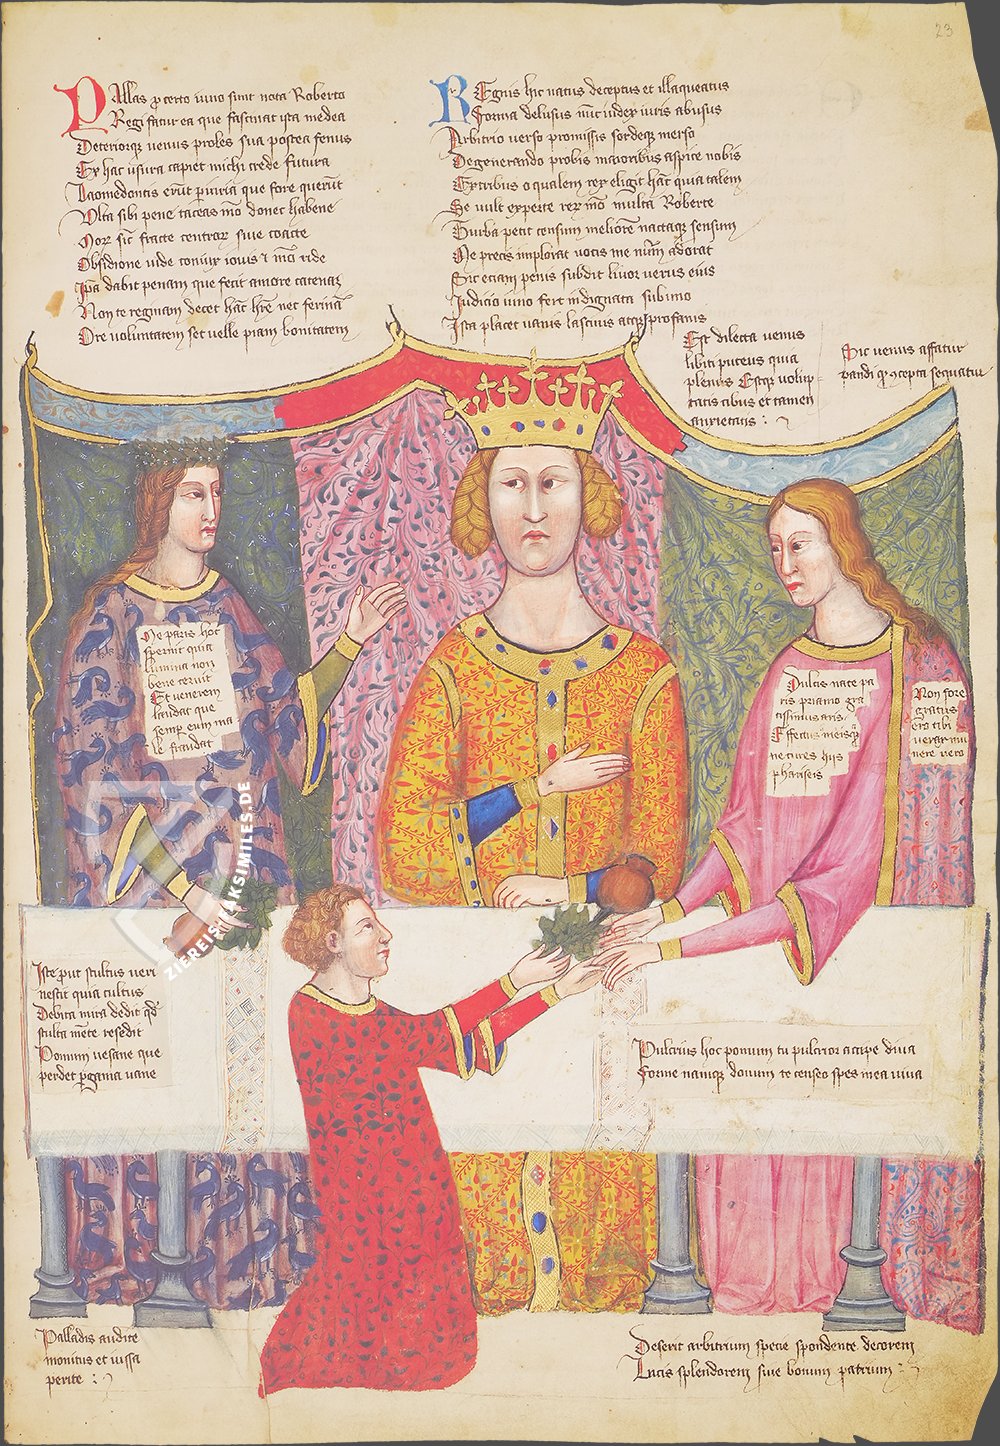 23
Pallas ꝓ certo iuno sunt nota Roberto
Regi fatur ea que fascinat ista medea
Deteriorꝗ venus proles sua postea fenus
Ex hac usura capiet michi crede futura
Laomedontis erūt que fore querūt
Ulta sibi pene taceas mō donec habene
fracte centrorꝝ siue coacte
Obsidione vide coniux iouis ⁊ ride
Ipa dabit penam que fecit amore catenaꝫ
Non te reginam decet hāc nec ferinā
Ore voluntatem set velle piam bonitatem
Regnis hic natus deceptus et illaqueatus
Forma delusus nūc iudex iuris abusus
Arbitrio verso promissis sordeꝗ merso
Degenerando probis maioribus aspice nobis
Ex tribus o qualem rex eligit hāc quia talem
Se uult experte rerꝝ mō multa Roberte
Turba petit censum meliorē nactaꝗ sensum
Me precis implorat uotis me adorat
Sic eciam penis subdit liuor verus eius
Iudicio iuno fert indignata sub imo
Ista placet uanis lasciuis atꝗ profanis
Est dilecta venus
libiti puteus quia
plenus Estꝗ volup
tatis cibus et tamen
anxietatis :
Sic venus affatur
pandi ꝙ ꝯcepta sequatur
Me paris hoc
spernit quia
lumina non
bene cernit
Et venerem
laudat que
semꝑ eum ma
le fraudat
Dulcis nate pa
ris priamo gra
tissimus aris
Effectus meisꝗ
ne cures hiis
phariseis
Non fore
gratus
ero tibi
verax
uere uero
Iste put stultus veri
nescit quia cultus
Debita mira dedit qd
stulta mēte resedit
Pomum uesane que
perdet ꝑgama uane
Pulcrius hoc pomum tu pulcrior accipe diua
Forme namque donum te censeo spes mea viua
Palladis audite
monitus et iussa
perite :
Deserit arbitrium specie spondente decorem
Lucis splendorem siue bonum patrium :
ZIEREIS FAKSIMILES.DE